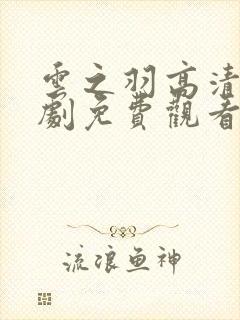 雲之羽高清
劇免費觀看
流浪鱼神